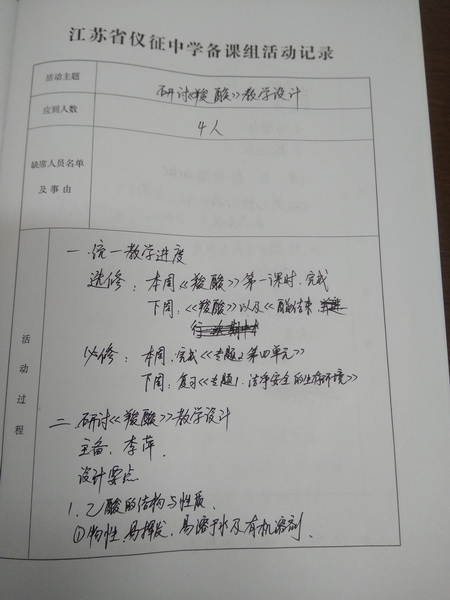 江苏省仪征中学备课组活动记录
活动主题 研讨《羧酸》教学设计
应到人数 4人
缺席人员名单及事由
活动过程
一.统一教学进度
选修:本周《羧酸》第一课时.完成
下周:《羧酸》以及《酯》结束.
必修:本周.完成《专题2 第四单元》
下周:复习《专题1.洁净安全的生存环境》
二.研讨《羧酸》教学设计
主备.李萍.
设计要点
1.乙酸的结构与性质、
①物性.易挥发.易溶于水及有机溶剂.